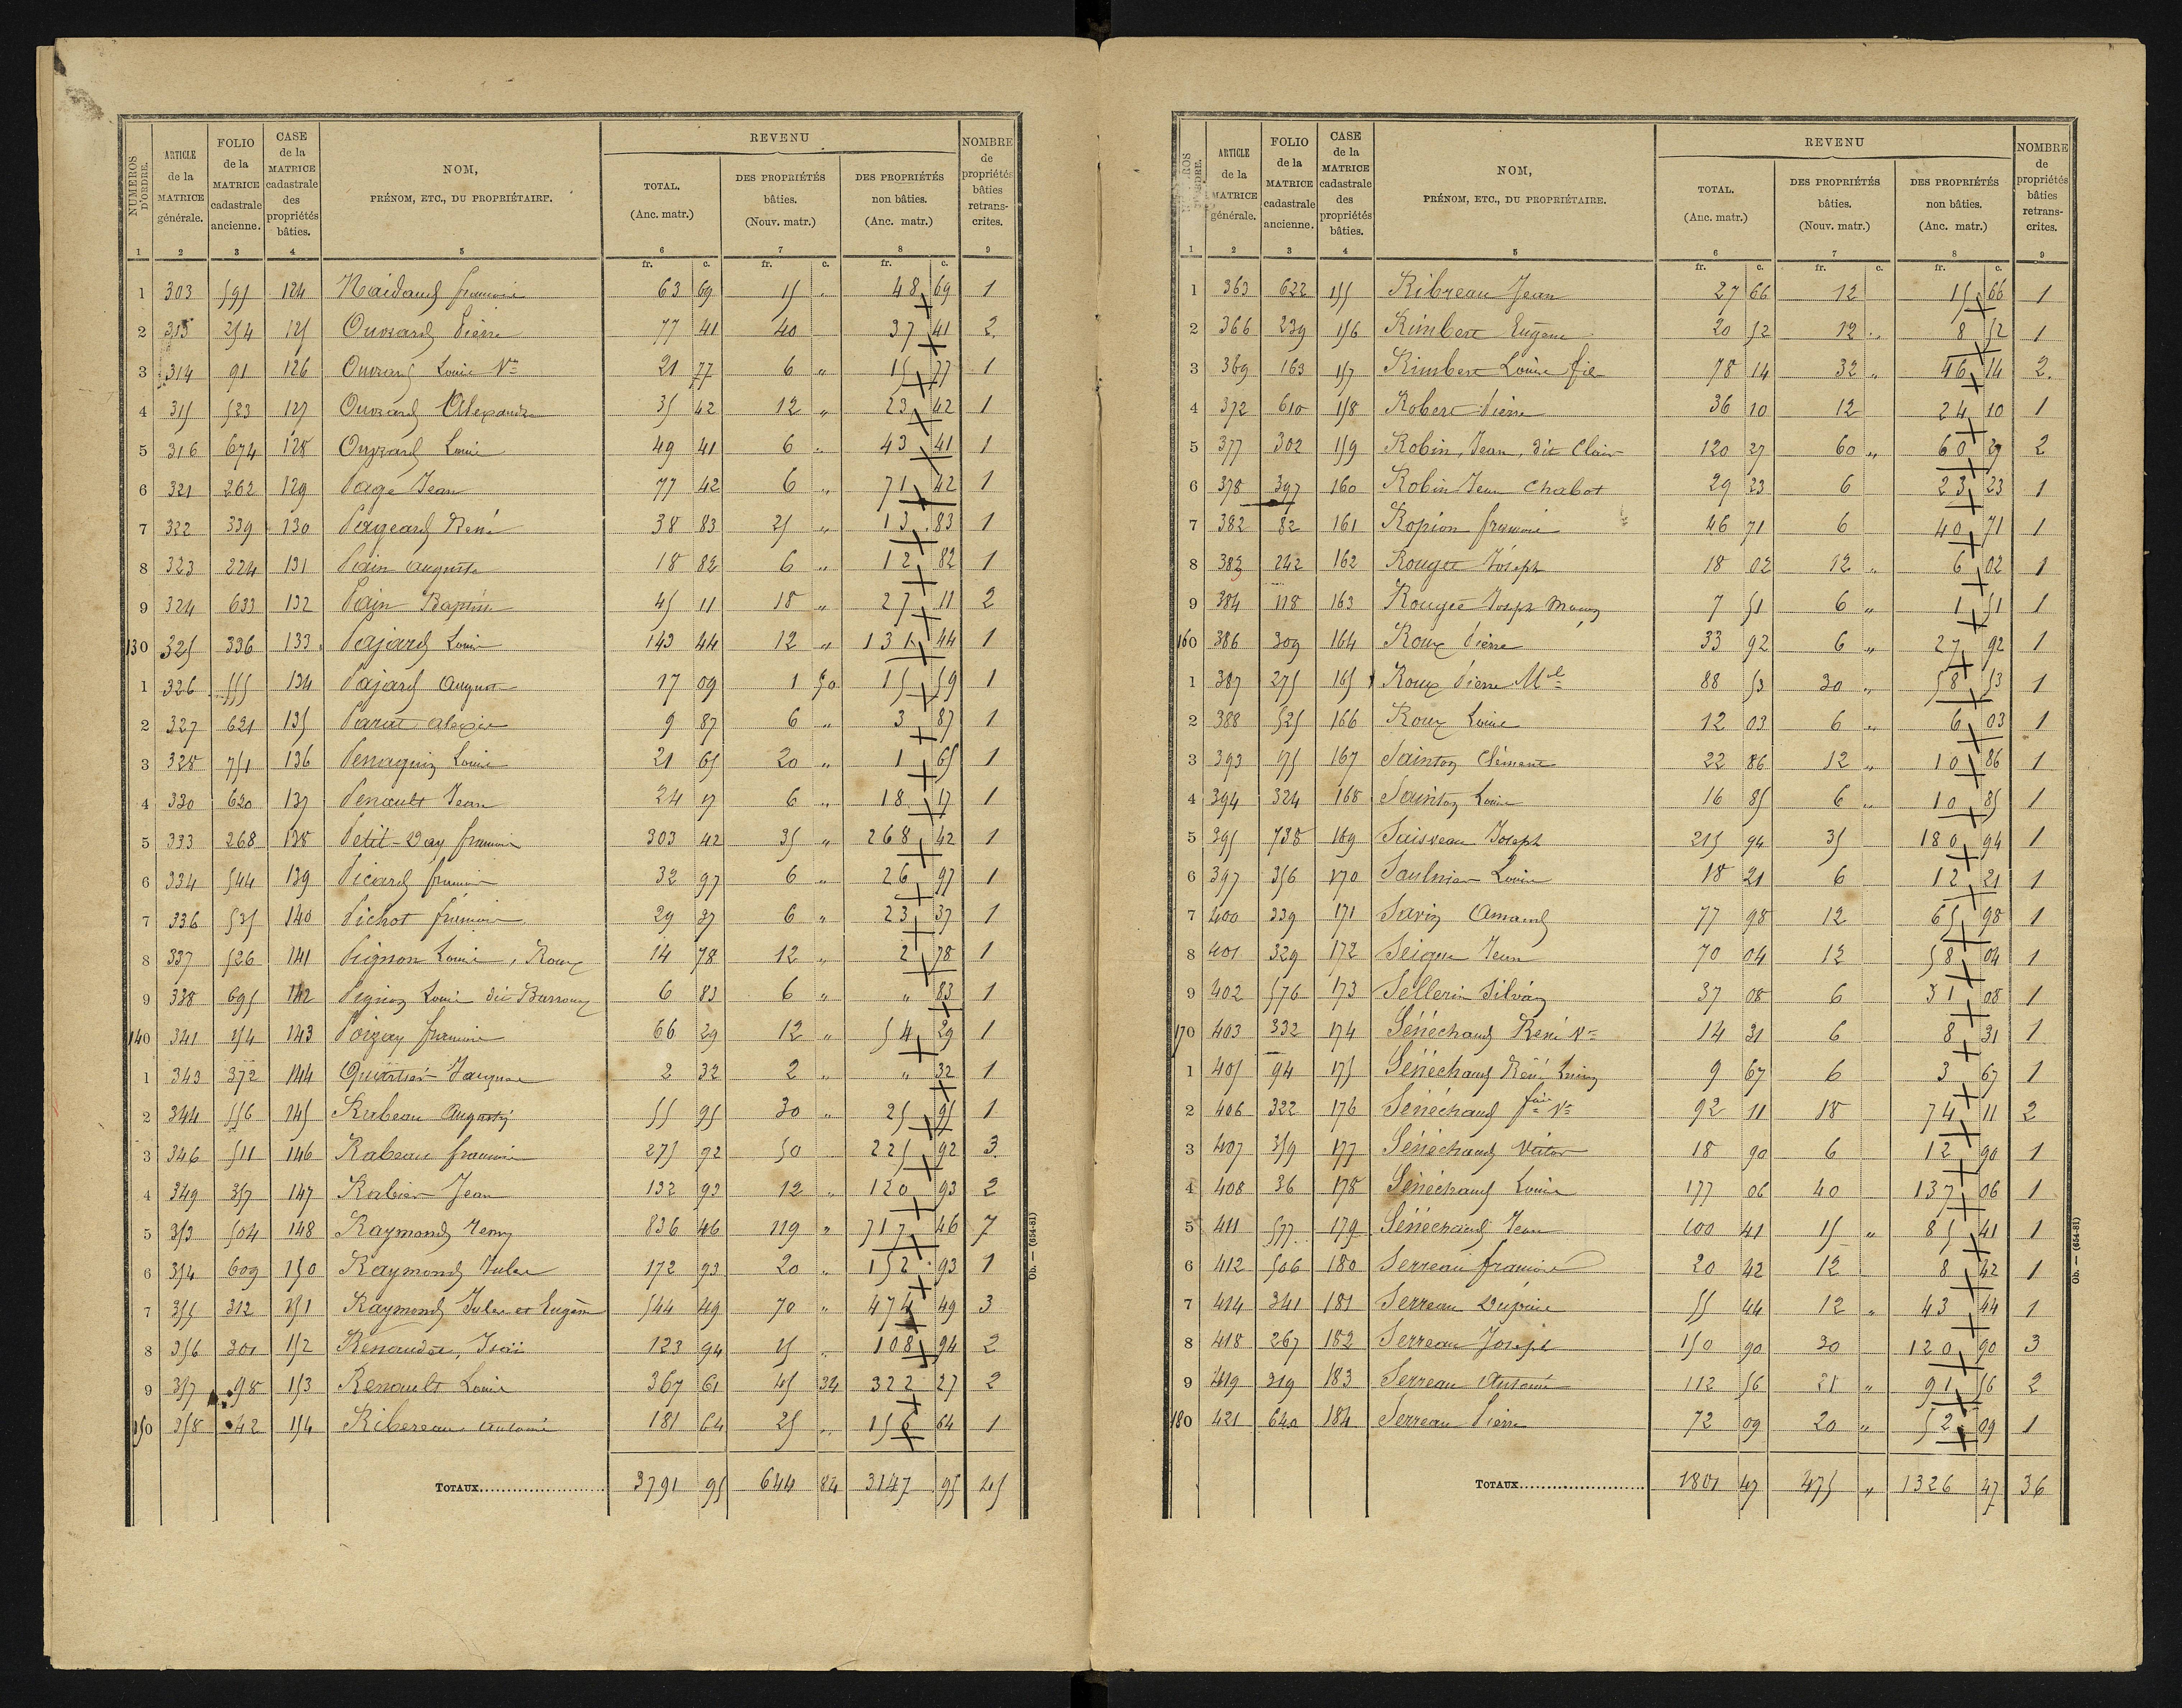 NUMÉROS D'ORDRE. | ARTICLE de la MATRICE générale. | FOLIO de la MATRICE cadastrale ancienne. | CASE de la MATRICE cadastrale des propriétés bâties. | NOM, PRÉNOM, ETC., DU PROPRIÉTAIRE. | REVENU TOTAL. (Anc. matr.) | DES PROPRIÉTÉS bâties. (Nouv. matr.) | DES PROPRIÉTÉS non bâties. (Anc. matr.) | NOMBRE de propriétés bâties retranscrites.
1 2 3 4 5 6 7 8 9
fr. c. fr. c. fr. c.
1 303 591 124 Naidaud françois 63 69 15 " 48 69 1
2 313 254 125 Ouvrard Pierre 77 41 40 37 41 2
3 314 91 126 Ouvrard Louis Ve 21 77 6 " 15 77 1
4 315 533 127 Ouvrard Alexandre 35 42 12 " 23 42 1
5 316 674 128 Ouvrard Louis 49 41 6 " 43 41 1
6 321 262 129 Pagé Jean 77 42 6 " 71 42 1
7 322 339 130 Pageard René 38 83 25 " 13 83 1
8 323 224 131 Pain Auguste 18 82 6 " 12 82 1
9 324 633 132 Pain Baptiste 45 11 18 " 27 11 2
130 325 336 133 Pajard Louis 143 44 12 " 131 44 1
1 326 555 134 Pajard August 17 09 1 50 15 59 1
2 327 621 135 Parat Alexis 9 87 6 " 3 87 1
3 328 751 136 Penaguin Louis 21 65 20 " 1 65 1
4 330 620 137 Penault Jean 24 17 6 " 18 17 1
5 333 268 138 Petit-Day françois 303 42 35 " 268 42 1
6 334 544 139 Picard françois 32 97 6 " 26 97 1
7 336 535 140 Pichot françois 29 37 6 " 23 37 1
8 337 526 141 Pignon Louis, Roux 14 78 12 " 2 78 1
9 338 695 142 Pignon Louis dit Barroux 6 83 6 " " 83 1
140 341 154 143 Poizay françois 66 29 12 " 54 29 1
1 343 372 144 Quartier Jacques 2 32 2 " " 32 1
2 344 556 145 Rabeau Augustin 55 95 30 " 25 95 1
3 346 511 146 Rabeau françois 275 92 50 225 92 3
4 349 357 147 Rabier Jean 132 93 12 " 120 93 2
5 353 504 148 Raymond Remy 836 46 119 " 717 46 7
6 354 609 150 Raymond Jules 172 93 20 " 152 93 1
7 355 312 151 Raymond Jules et Eugène 544 49 70 " 474 49 3
8 356 301 152 Renaudot, Isaïe 123 94 15 " 108 94 2
9 357 98 153 Renault Louis 367 61 45 34 322 27 2
150 358 42 154 Ribereau Antoine 181 64 25 " 156 64 1
TOTAUX 3791 95 644 84 3147 95 45
Ob. — (654-81)
NUMÉROS D'ORDRE. | ARTICLE de la MATRICE générale. | FOLIO de la MATRICE cadastrale ancienne. | CASE de la MATRICE cadastrale des propriétés bâties. | NOM, PRÉNOM, ETC., DU PROPRIÉTAIRE. | REVENU TOTAL. (Anc. matr.) | DES PROPRIÉTÉS bâties. (Nouv. matr.) | DES PROPRIÉTÉS non bâties. (Anc. matr.) | NOMBRE de propriétés bâties retranscrites.
1 2 3 4 5 6 7 8 9
fr. c. fr. c. fr. c.
1 363 622 155 Ribreau Jean 27 66 12 15 66 1
2 366 239 156 Rimbert Eugène 20 52 12 " 8 52 1
3 369 163 157 Rimbert Louis fils 78 14 32 " 46 14 2
4 372 610 158 Robert Pierre 36 10 12 24 10 1
5 377 302 159 Robin, Jean, dit Clair 120 27 60 " 60 27 2
6 378 397 160 Robin Jean Chabot 29 23 6 23 23 1
7 382 82 161 Ropion françois 46 71 6 40 71 1
8 383 242 162 Rouget Joseph 18 02 12 " 6 02 1
9 384 118 163 Rouget Joseph 7 51 6 " 1 51 1
160 386 309 164 Roux Pierre 33 92 6 " 27 92 1
1 387 275 165 Roux Pierre Mel 88 53 30 " 58 53 1
2 388 525 166 Roux Louis 12 03 6 " 6 03 1
3 393 175 167 Sainton Clément 22 86 12 " 10 86 1
4 394 324 168 Sainton Louis 16 85 6 " 10 85 1
5 395 738 169 Saisveau Joseph 215 94 35 180 94 1
6 397 356 170 Saulnier Louis 18 21 6 12 21 1
7 400 339 171 Savin Amand 77 98 12 65 98 1
8 401 329 172 Seigne Jean 70 04 12 58 04 1
9 402 576 173 Sellerin Silvain 37 08 6 31 08 1
170 403 332 174 Sénéchaud René Ve 14 31 6 8 31 1
1 405 94 175 Sénéchaud René 9 67 6 3 67 1
2 406 322 176 Sénéchaud fois Ve 92 11 18 74 11 2
3 407 359 177 Sénéchaud Victor 18 90 6 12 90 1
4 408 36 178 Sénéchaud Louis 177 06 40 137 06 1
5 411 577 179 Sénéchaud Jean 100 41 15 " 85 41 1
6 412 506 180 Serreau françois 20 42 12 8 42 1
7 414 341 181 Serreau 55 44 12 " 43 44 1
8 418 267 182 Serreau Joseph 150 90 30 120 90 3
9 419 319 183 Serreau Antoine 112 56 21 " 91 56 2
180 421 640 184 Serreau Pierre 72 09 20 " 52 09 1
TOTAUX 1801 47 475 " 1326 47 36
Ob. — (654-81)